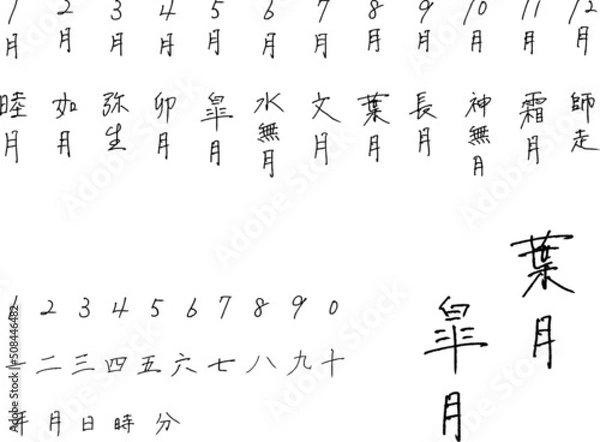 1月 2月 3月 4月 5月 6月 7月 8月 9月 10月 11月 12月
睦月 如月 弥生 卯月 皐月 水無月 文月 葉月 長月 神無月 霜月 師走
葉月
皐月
1 2 3 4 5 6 7 8 9 0
一 二 三 四 五 六 七 八 九 十
年 月 日 時 分
Adobe Stock | #508446482